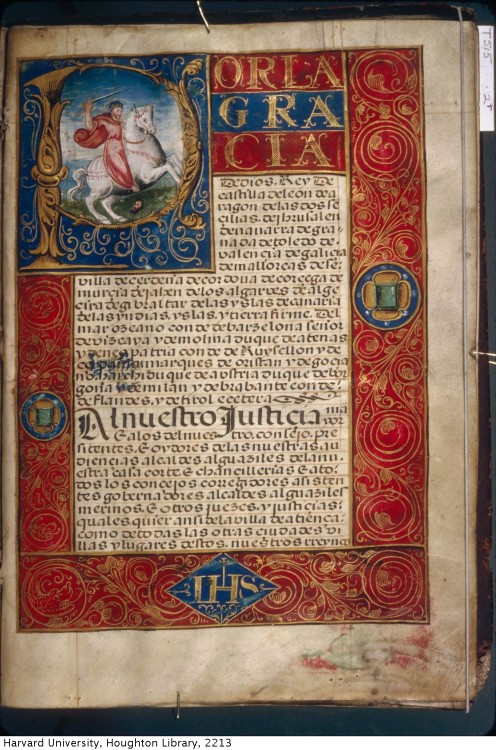 POR LA
GRA
CIA
De dios, Rey De
castilla de león de a
ragon de las dos se
çilias, de jhrusalen
de navarra de gra
nada de toledo de
valençia de galiçia
de mallorcas de se
villa de çerdeña de cordova de corçega de
murçia de jalen de los algarves de alge
zira de gibraltar de las yslas de canaria
de las yndias, yslas, y tierra firme, Del
mar oçeano conde de barzelona señor
de vizcaya y de molina duque de atenas
y patria conde de Ruysellon y de
marques de oristan y de goçia
duque de austria duque de bor
goña de milan y de brabante conde,
de flandes, y de tirol eceterа
Al nuestro Justicia ma
yor
E a los del nuestro, consejo, pre
sidentes, E oydores de las nuestras, au
diençias alcaldes alguaziles de la nu
estra casa corte, E chançillerias E a to
dos los conçejos corregidores asisten
tes governadores alcaldes alguaziles
merinos, E otros juezes, y justiçias,
quales quier ansi de la villa de atiença,
como de todas las otras çiudades vi
llas y lugares destos, nuestros reyno
IHS
T515
.2r
Harvard University, Houghton Library, 2213